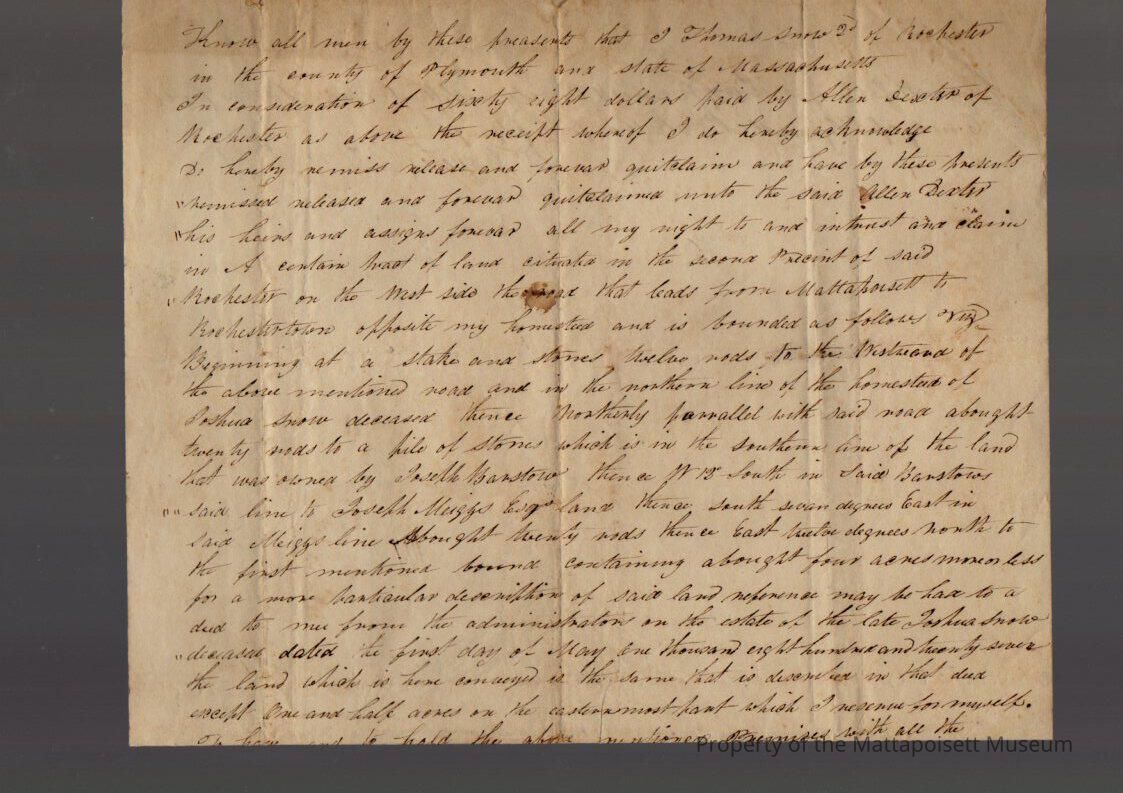 Know all men by these preasents that I Thomas Snow 2d of Rochester
in the county of Plymouth and state of Massachusetts
In consideration of sixty eight dollars paid by Allen Dexter of
Rochester as above the receipt whereof I do hereby acknowledge
Do hereby remiss release and forevar quitclaim and have by these presents
remissed released and forevar quitclaimed unto the said Allen Dexter
his heirs and assigns forevar all my right to and intrust and claim
in A certain tract of land cituated in the second Precint of said
Rochester on the West side the road that leads from Mattapoisett to
Rochestertown opposite my homested and is bounded as follows viz
Beginning at a stake and stones twelve rods to the Westward of
the above mentioned road and in the northern line of the homested of
Joshua Snow deceased thence Northerly parrallel with said road abought
twenty rods to a pile of stones which is in the southern line of the land
that was owned by Joseph Barstow thence W 12 South in Said Barstows
said line to Joseph Meiggs Esqr land thence south sevan degrees East in
said Meiggs line Abought twenty rods thence East twelve degrees north to
the first mentioned bound containing abought four acres more or less
for a more particular description of said land reference may be had to a
deed to mee from the administrators on the estate of the late Joshua Snow
deceased dated the first day of May one thousand eight hundred and twenty seven
the land which is here conveyed is the same that is described in that deed
except One and half acres on the easternmost part which I reserve for myself.
To have and to hold the above mentioned Premises with all the
Property of the Mattapoisett Museum